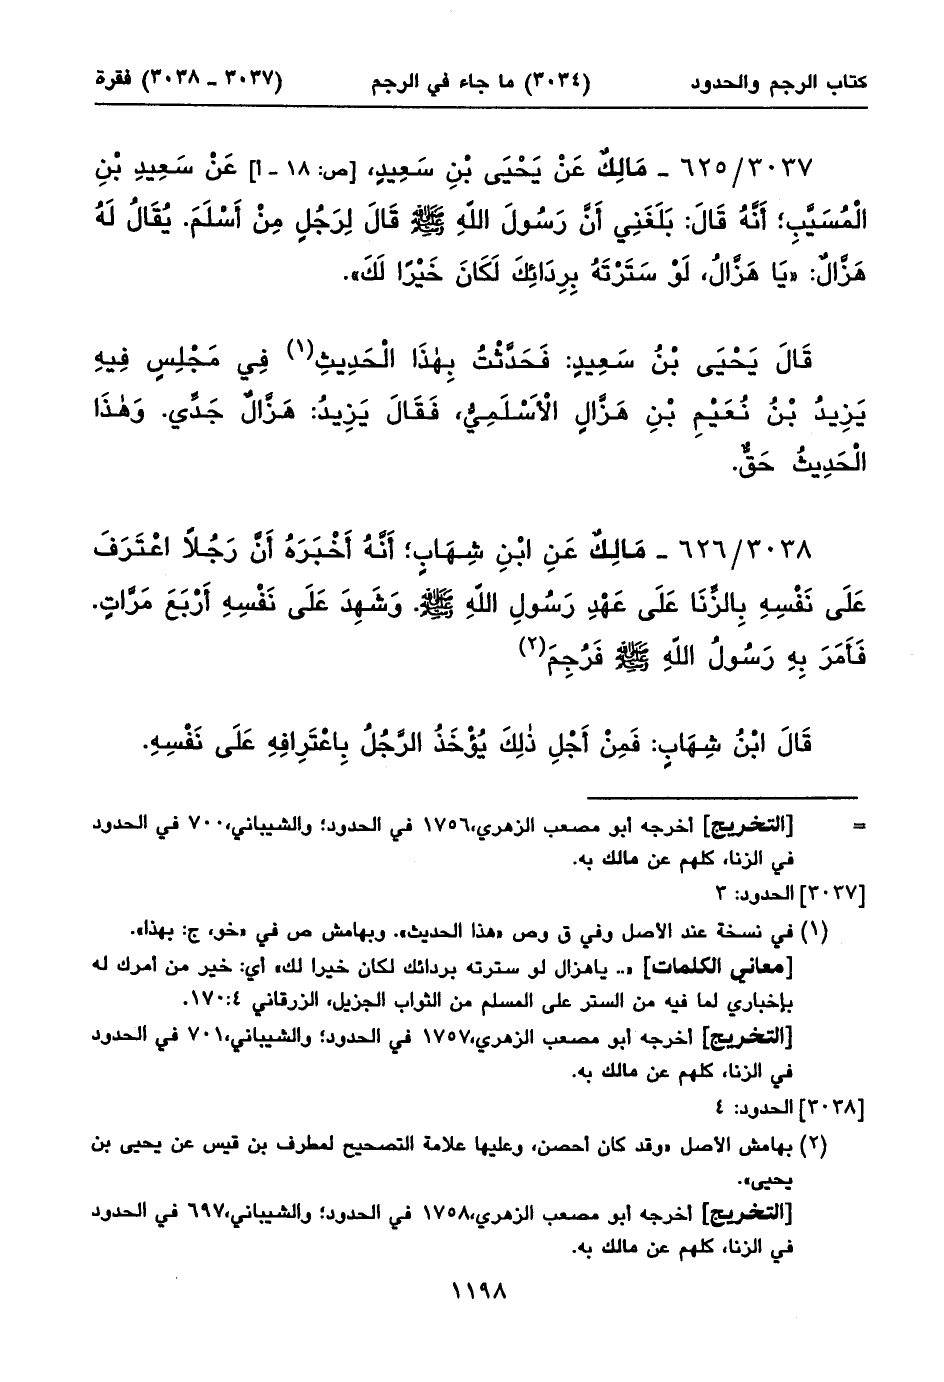 كتاب الرجم والحدود (٣٠٣٤) ما جاء في الرجم (٣٠٣٧ - ٣٠٣٨) فقرة
٦٢٥/٣٠٣٧ - مَالِكٌ عَنْ يَحْيَى بْنِ سَعِيدٍ، [ص: ١٨ - أ] عَنْ سَعِيدِ بْنِ
الْمُسَيَّبِ؛ أَنَّهُ قَالَ: بَلَغَنِي أَنَّ رَسُولَ اللّٰهِ ﷺ قَالَ لِرَجُلٍ مِنْ أَسْلَمَ. يُقَالُ لَهُ
هَزَّالٌ: «يَا هَزَّالُ، لَوْ سَتَرْتَهُ بِرِدَائِكَ لَكَانَ خَيْرًا لَكَ».
قَالَ يَحْيَى بْنُ سَعِيدٍ: فَحَدَّثْتُ بِهٰذَا الْحَدِيثِ(١) فِي مَجْلِسٍ فِيهِ
يَزِيدُ بْنُ نُعَيْمِ بْنِ هَزَّالٍ الْأَسْلَمِيُّ، فَقَالَ يَزِيدُ: هَزَّالٌ جَدِّي. وَهٰذَا
الْحَدِيثُ حَقٌّ.
٦٢٦/٣٠٣٨ - مَالِكٌ عَنِ ابْنِ شِهَابٍ؛ أَنَّهُ أَخْبَرَهُ أَنَّ رَجُلًا اعْتَرَفَ
عَلَى نَفْسِهِ بِالزِّنَا عَلَى عَهْدِ رَسُولِ اللّٰهِ ﷺ. وَشَهِدَ عَلَى نَفْسِهِ أَرْبَعَ مَرَّاتٍ.
فَأَمَرَ بِهِ رَسُولُ اللّٰهِ ﷺ فَرُجِمَ(٢)
قَالَ ابْنُ شِهَابٍ: فَمِنْ أَجْلِ ذٰلِكَ يُؤْخَذُ الرَّجُلُ بِاعْتِرَافِهِ عَلَى نَفْسِهِ.
= [التخريج] أخرجه أبو مصعب الزهري،١٧٥٦ في الحدود؛ والشيباني،٧٠٠ في الحدود
في الزنا، كلهم عن مالك به.
[٣٠٣٧] الحدود: ٣
(١) في نسخة عند الأصل وفي ق وص «هذا الحديث». وبهامش ص في «خو، ج: بهذا».
[معاني الكلمات] «.. ياهزال لو سترته بردائك لكان خيرا لك» أي: خير من أمرك له
بإخباري لما فيه من الستر على المسلم من الثواب الجزيل، الزرقاني ١٧٠:٤.
[التخريج] أخرجه أبو مصعب الزهري،١٧٥٧ في الحدود؛ والشيباني،٧٠١ في الحدود
في الزنا، كلهم عن مالك به.
[٣٠٣٨] الحدود: ٤
(٢) بهامش الأصل «وقد كان أحصن، وعليها علامة التصحيح لمطرف بن قيس عن يحيى بن
يحيى».
[التخريج] أخرجه أبو مصعب الزهري،١٧٥٨ في الحدود؛ والشيباني،٦٩٧ في الحدود
في الزنا، كلهم عن مالك به.
١١٩٨